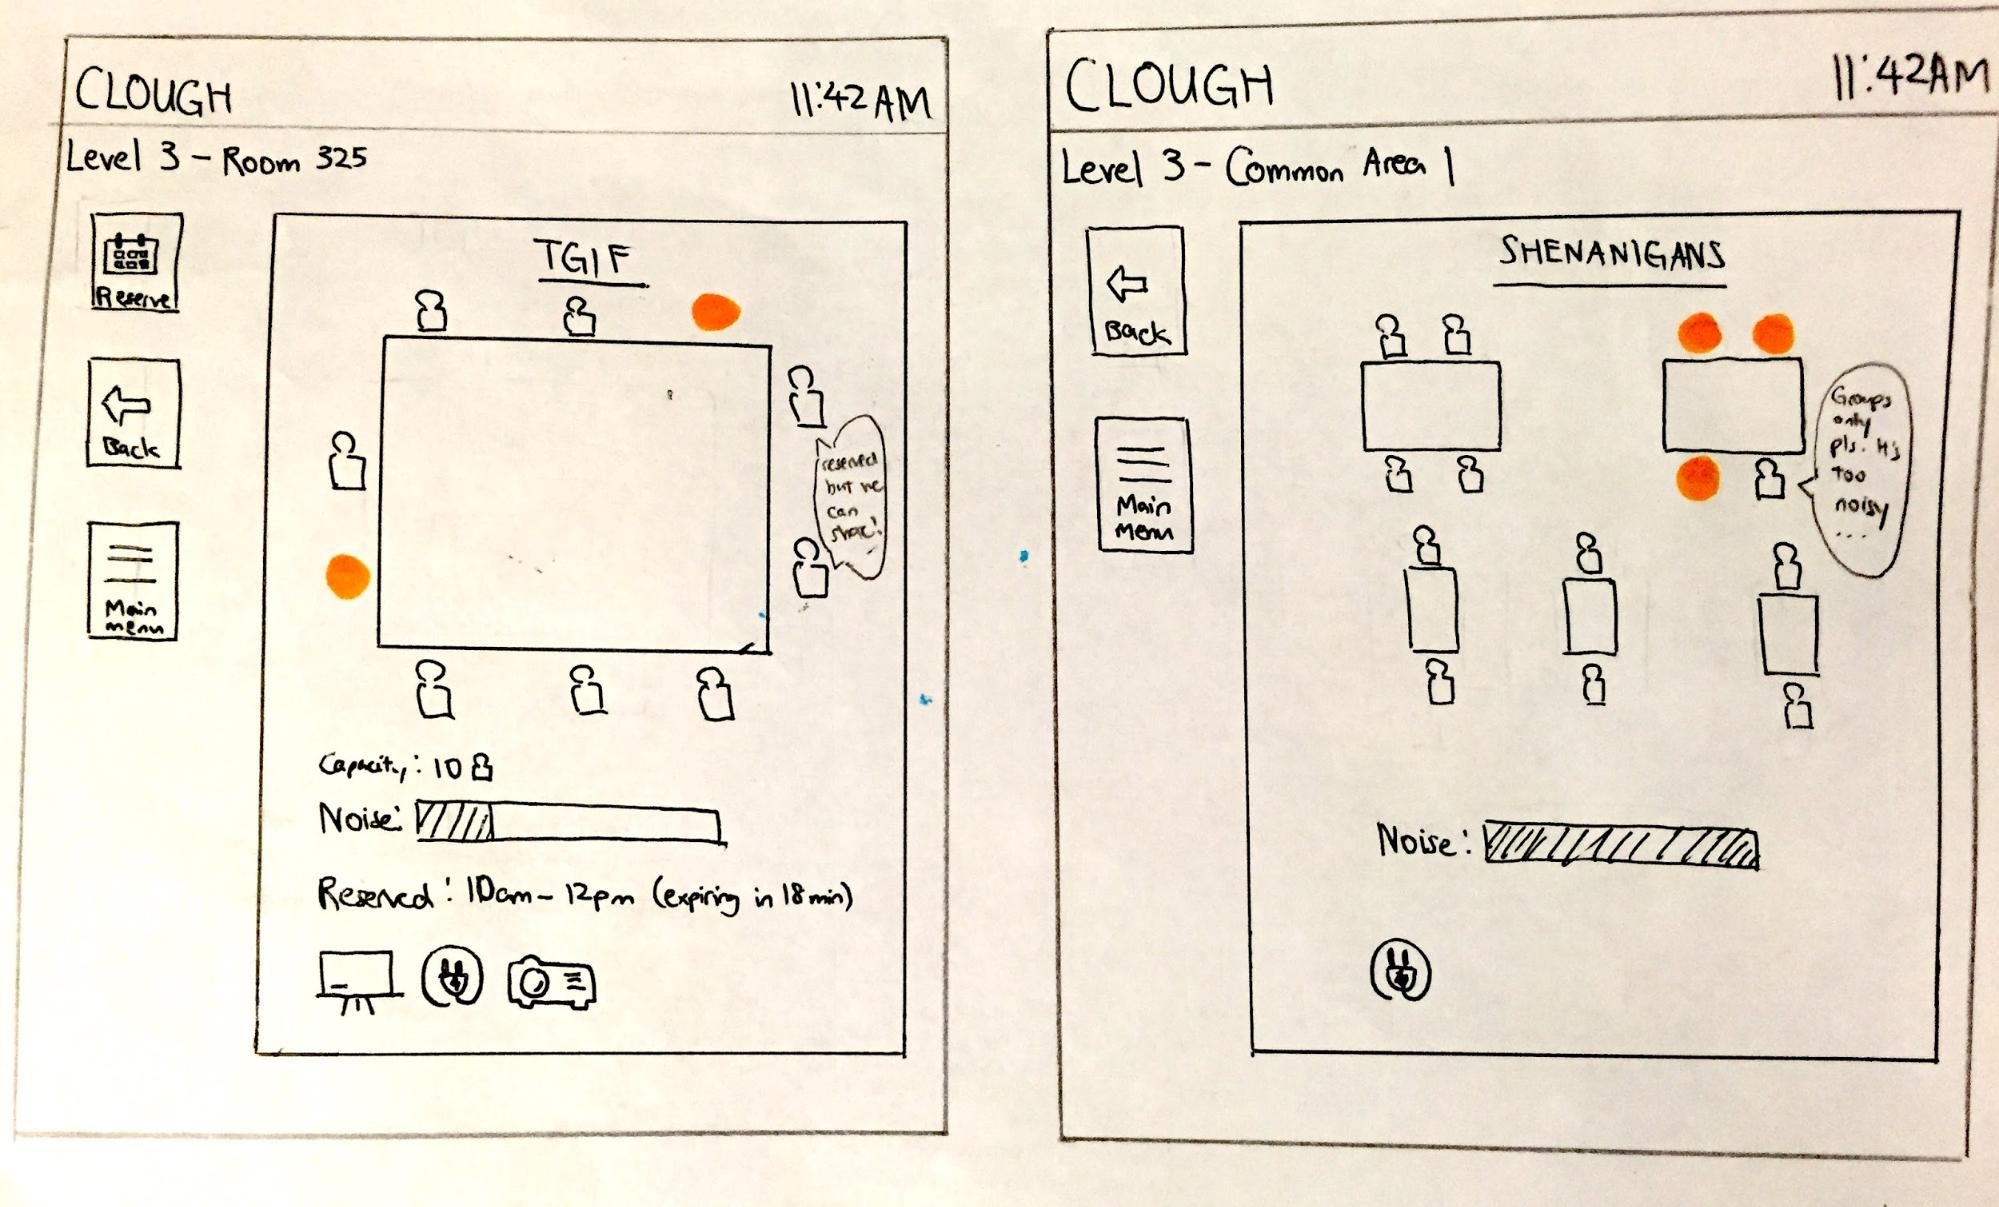 CLOUGH
11:42AM
Level 3 - Room 325
Reserve
Back
Main
menu
TGIF
reserved
but we
can
share!
Capacity: 10
Noise:
Reserved: 10am - 12pm (expiring in 18min)
CLOUGH
11:42AM
Level 3 - Common Area 1
Back
Main
menu
SHENANIGANS
Groups
only
pls. It's
too
noisy
...
Noise: